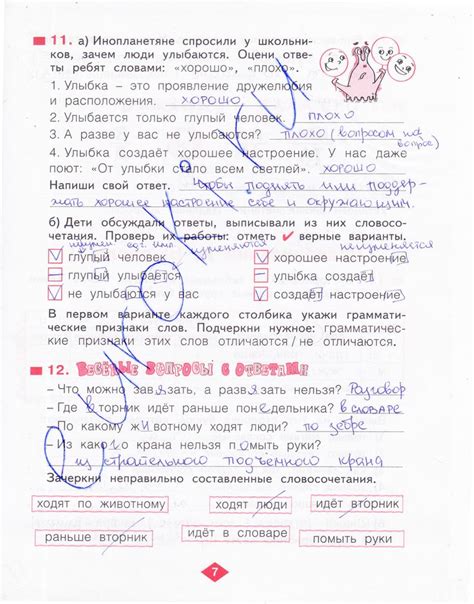 11. а) Инопланетяне спросили у школьни-
ков, зачем люди улыбаются. Оцени отве-
ты ребят словами: «хорошо», «плохо».
1. Улыбка – это проявление дружелюбия
и расположения. хорошо
2. Улыбается только глупый человек. плохо
3. А разве у вас не улыбаются? плохо (вопросом на
вопрос)
4. Улыбка создаёт хорошее настроение. У нас даже
поют: «От улыбки стало всем светлей». хорошо
Напиши свой ответ. Чтобы поднять или поддер-
жать хорошее настроение себе и окружающим.
б) Дети обсуждали ответы, выписывали из них словосо-
четания. Проверь их работы: отметь ✓ верные варианты.
глупый человек хорошее настроение
глупый улыбается улыбка создаёт
не улыбаются у вас создаёт настроение
В первом варианте каждого столбика укажи граммати-
ческие признаки слов. Подчеркни нужное: грамматичес-
кие признаки этих слов отличаются / не отличаются.
12. ВЕСЁЛЫЕ ВОПРОСЫ С ОТВЕТАМИ
– Что можно завязать, а развязать нельзя? Разговор
– Где вторник идёт раньше понедельника? в словаре
– По какому животному ходят люди? по зебре
– Из какого крана нельзя помыть руки?
из строительного подъёмного крана
Зачеркни неправильно составленные словосочетания.
ходят по животному ходят люди идёт вторник
раньше вторник идёт в словаре помыть руки
7